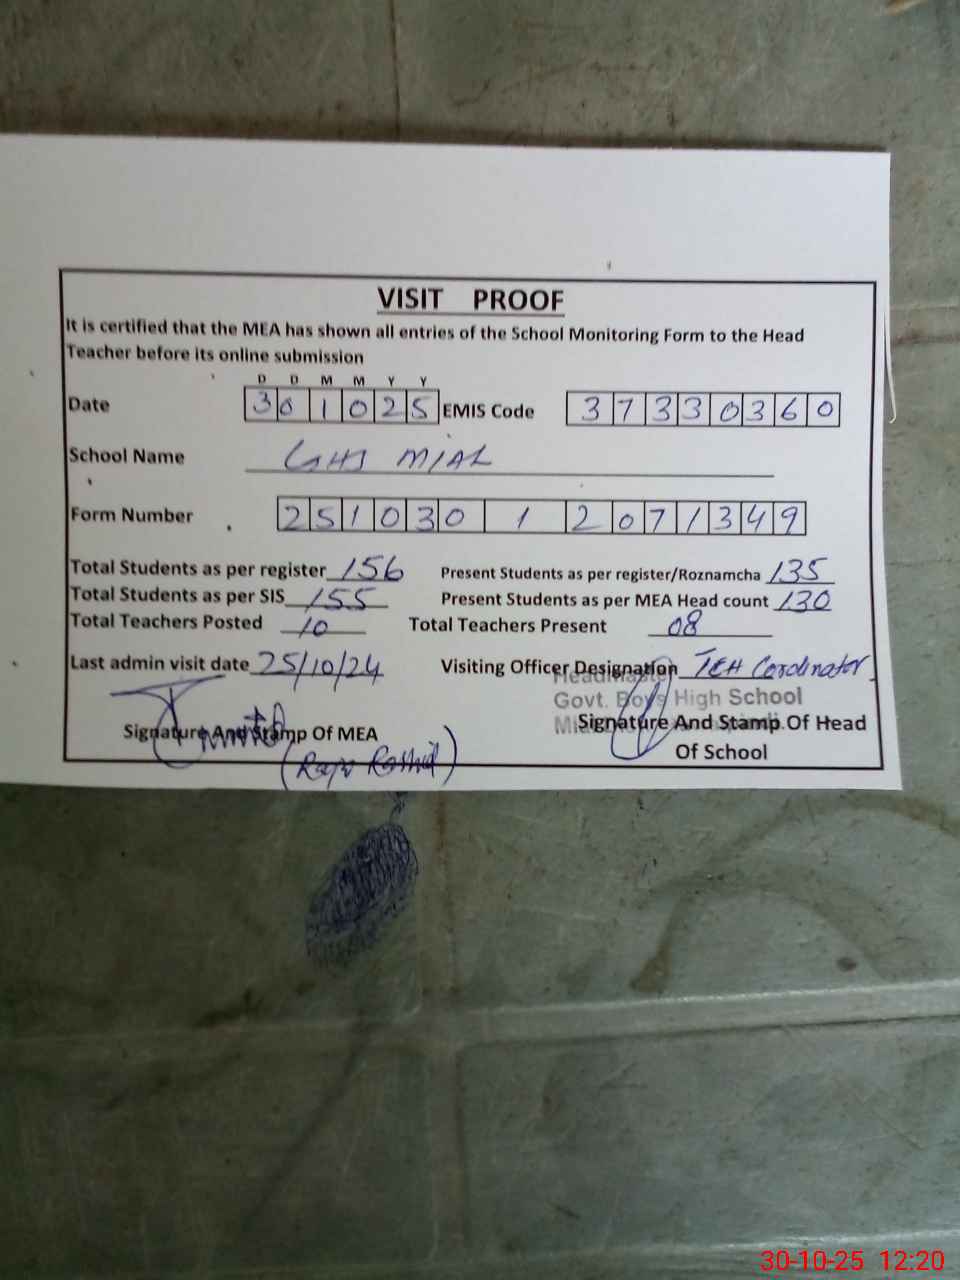 VISIT PROOF
It is certified that the MEA has shown all entries of the School Monitoring Form to the Head
Teacher before its online submission
D D M M Y Y
Date 301025 EMIS Code 37330360
School Name GHS MIAL
Form Number 251030 1 2071349
Total Students as per register 156 Present Students as per register/Roznamcha 135
Total Students as per SIS 155 Present Students as per MEA Head count 130
Total Teachers Posted 10 Total Teachers Present 08
Last admin visit date 25/10/24 Visiting Officer Designation TEH Cordinator
Headmaster
Govt. Boys High School
Signature And Stamp Of MEA Signature And Stamp Of Head
Of School
30-10-25 12:20